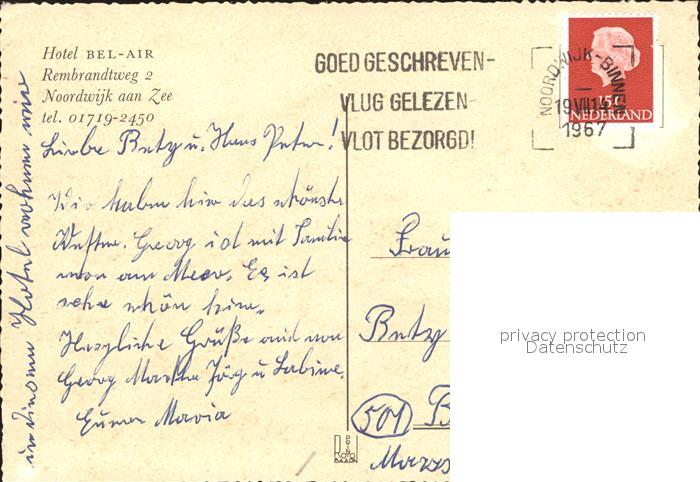 Hotel BEL-AIR
Rembrandtweg 2
Noordwijk aan Zee
tel. 01719-2450
GOED GESCHREVEN-
VLUG GELEZEN-
VLOT BEZORGD!
NOORDWIJK-BINNEN
19 VII
1967
15 C
NEDERLAND
Liebe Betzy u. Hans Peter!
Wir haben hier das schönste
Wetter. Georg ist mit Familie
am Meer. Es ist
sehr schön hier.
Herzliche Grüße auch von
Georg Martha Jörg u Sabine.
Eure Maria
in diesem Hotel wohnen wir
Frau
Betzy
(501) B
privacy protection
Datenschutz